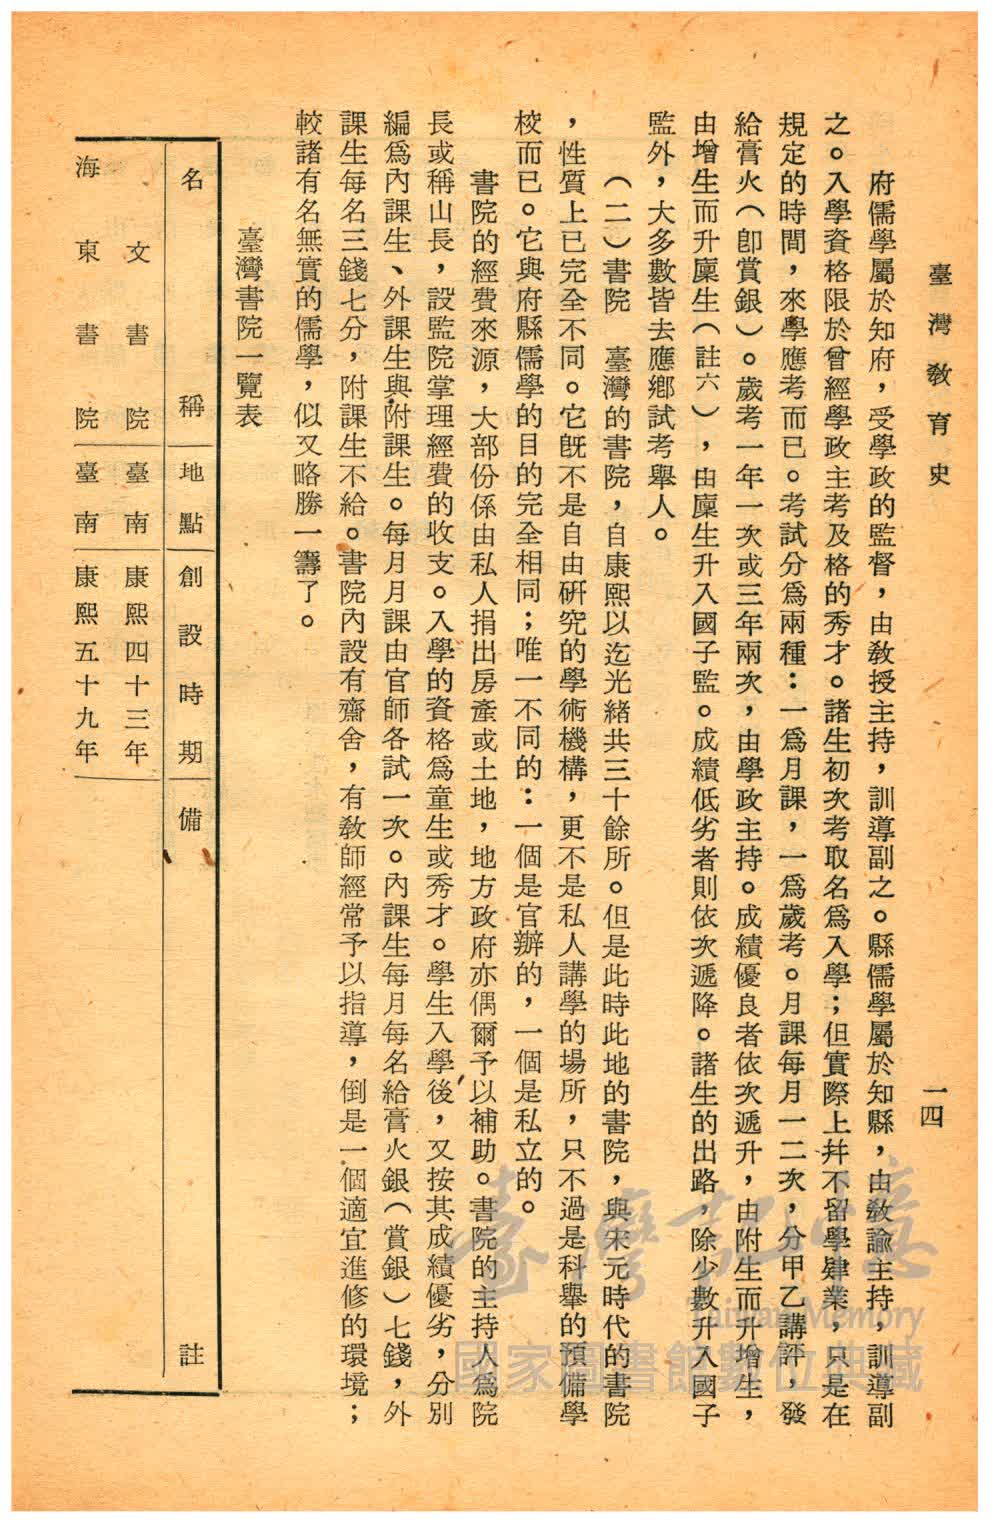 臺灣教育史
一四
府儒學屬於知府，受學政的監督，由敎授主持，訓導副之。縣儒學屬於知縣，由敎諭主持，訓導副
之。入學資格限於曾經學政主考及格的秀才。諸生初次考取名爲入學；但實際上幷不留學肄業，只是在
規定的時間，來學應考而已。考試分爲兩種：一爲月課，一爲歲考。月課每月一二次，分甲乙講評，發
給膏火（卽賞銀）。歲考一年一次或三年兩次，由學政主持。成績優良者依次遞升，由附生而升增生，
由增生而升廩生（註六），由廩生升入國子監。成績低劣者則依次遞降。諸生的出路，除少數升入國子
監外，大多數皆去應鄉試考舉人。
（二）書院　臺灣的書院，自康熙以迄光緒共三十餘所。但是此時此地的書院，與宋元時代的書院
，性質上已完全不同。它旣不是自由研究的學術機構，更不是私人講學的場所，只不過是科舉的預備學
校而已。它與府縣儒學的目的完全相同；唯一不同的：一個是官辦的，一個是私立的。
書院的經費來源，大部份係由私人捐出房產或土地，地方政府亦偶爾予以補助。書院的主持人爲院
長或稱山長，設監院掌理經費的收支。入學的資格爲童生或秀才。學生入學後，又按其成績優劣，分別
編爲內課生、外課生與附課生。每月月課由官師各試一次。內課生每月每名給膏火銀（賞銀）七錢，外
課生每名三錢七分，附課生不給。書院內設有齋舍，有敎師經常予以指導，倒是一個適宜進修的環境；
較諸有名無實的儒學，似又略勝一籌了。
臺灣書院一覽表
名稱　地點　創設時期　備註
文書院　臺南　康熙四十三年
海東書院　臺南　康熙五十九年
臺灣記憶
Taiwan Memory
國家圖書館數位典藏